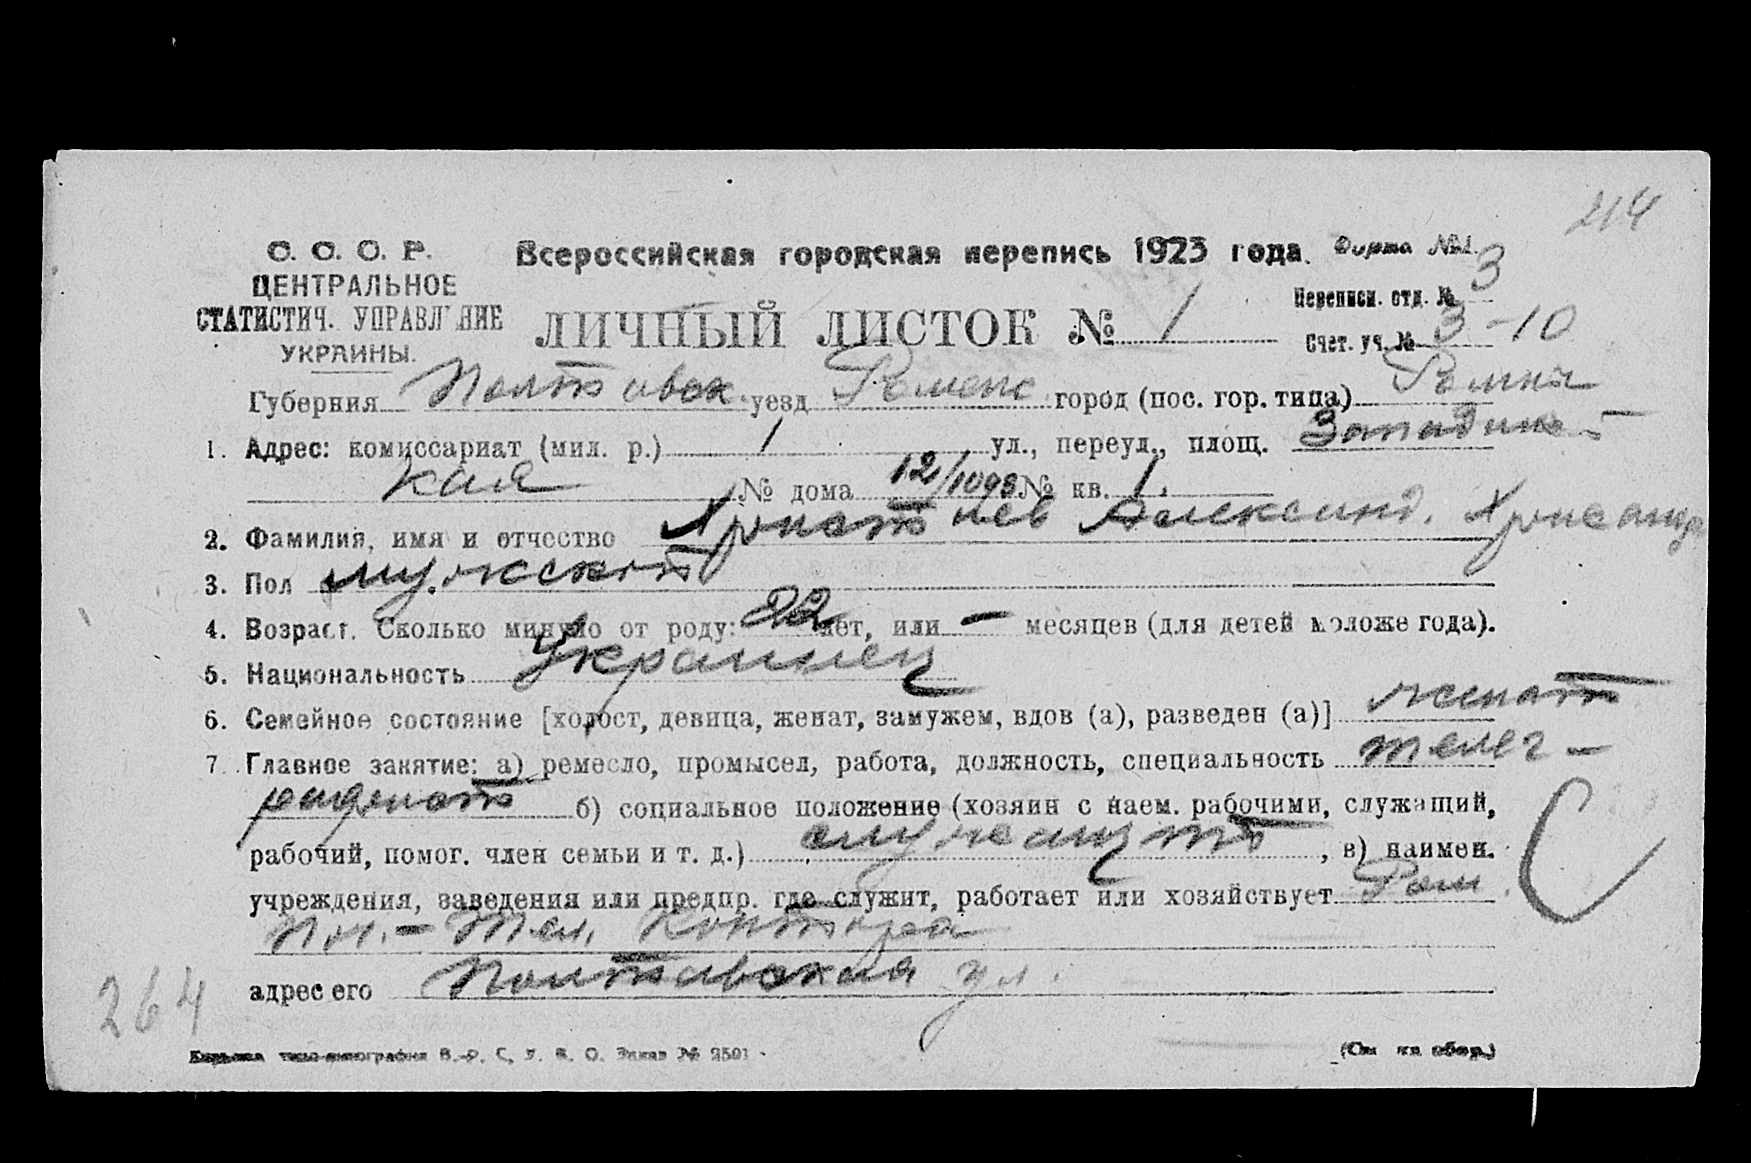 214
С. С. С. Р.
ЦЕНТРАЛЬНОЕ
СТАТИСТИЧ. УПРАВЛЕНИЕ
УКРАИНЫ.
Всероссийская городская перепись 1923 года. Форма №1.
ЛИЧНЫЙ ЛИСТОК № 1
Переписн. отд. № 3
Счет. уч. № 3-10
Губерния Полтавск. уезд Роменс город (пос. гор. типа) Ромны
1. Адрес: комиссариат (мил. р.) 1 ул., переул., площ. Западинс-
кая № дома 12/1093 № кв. 1.
2. Фамилия, имя и отчество Александ.
3. Пол мужской
4. Возраст. Сколько минуло от роду: 22 лет, или — месяцев (для детей моложе года).
5. Национальность Украинец
6. Семейное состояние [холост, девица, женат, замужем, вдов (а), разведен (а)] женат
7. Главное занятие: а) ремесло, промысел, работа, должность, специальность телег-
рафист б) социальное положение (хозяин с наем. рабочими, служащий,
рабочий, помог. член семьи и т. д.) служащий, в) наимен.
учреждения, заведения или предпр. где служит, работает или хозяйствует Ром.
Поч.-Тел. Контора
адрес его Полтавская ул.
264
С
типо-литография В.-Р. С, У. В. О. Заказ № 2501
(См на обор.)